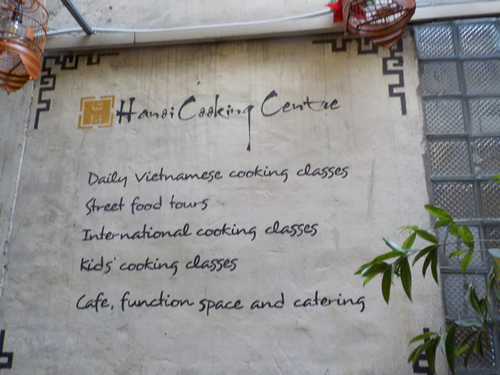 Hanoi Cooking Centre
Daily Vietnamese cooking classes
Street food tours
International cooking classes
Kids' cooking classes
Cafe, function space and catering